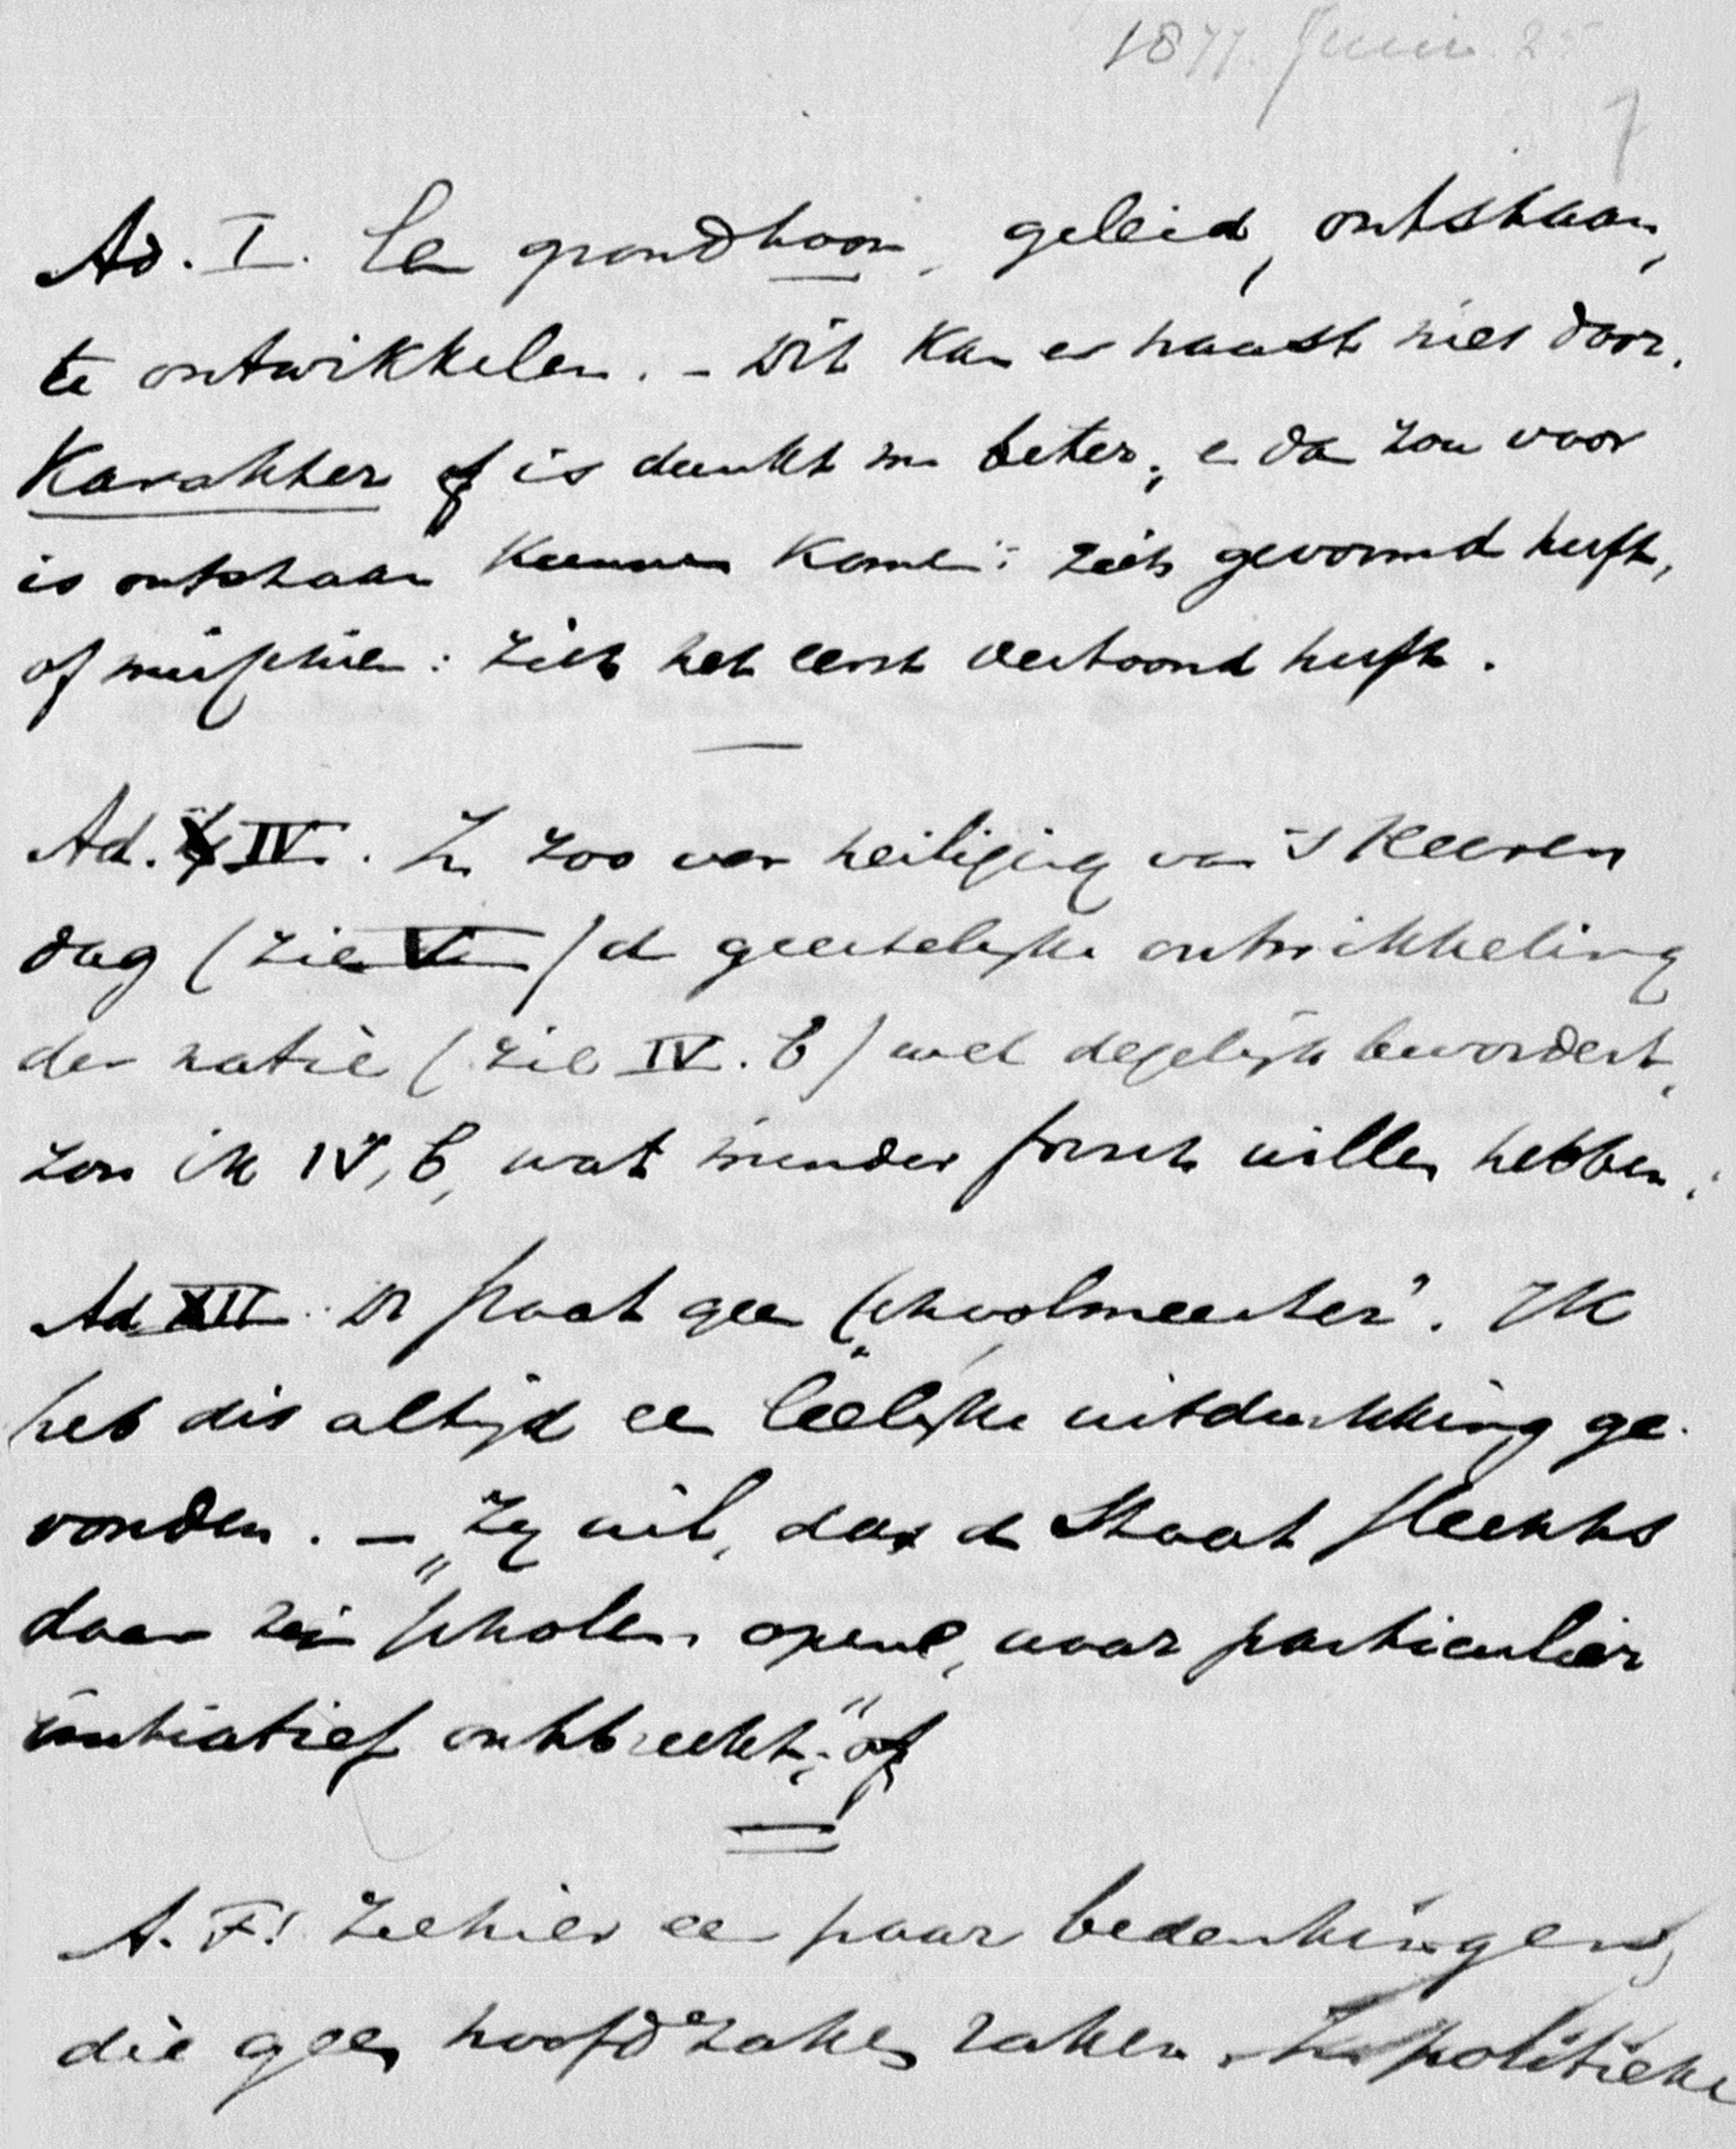 1877. Juni 25
7
Ad. I. Een grondtoon, geleid, ontstaan,
te ontwikkelen. – Dit kan er haast niet door.
Karakter is dunkt me beter, en dan zou voor
is ontstaan kunnen komen: zich gevormd heeft,
of misschien: zich het eerst vertoond heeft.
Ad. IV. In zoover heiliging van 's Heeren
dag (zie V) de geestelijke ontwikkeling
der natie (zie IV. b) wel degelijk bevordert,
zou ik IV, b, wat minder forsch willen hebben.
Ad XII. De staat geen „schoolmeester". Ik
heb dit altijd een leelijke uitdrukking ge-
vonden. – „Zij wil, dat de Staat slechts
daar zijn scholen opene, waar particulier
initiatief ontbreekt;" of
A. F! Ziehier een paar bedenkingen,
die geen hoofdzaken raken. In politieke